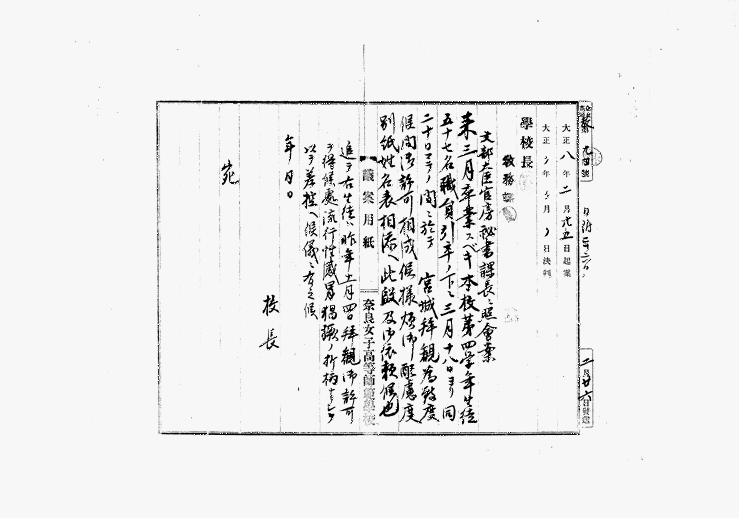 第九四號
大正八年二月廿五日起案
大正 年 月 日決判
學校長
教務課
文部大臣官房秘書課長ニ照會案
来三月卒業スベキ本校第四学年生徒
五十七名職員引率ノ下ニ三月十八日ヨリ同
二十日マデノ間ニ於テ宮城拝観為致度
候間御許可相成候様煩御配慮度
別紙姓名表相添ヘ此段及御依頼候也
議案用紙
奈良女子高等師範學校
追テ右生徒ハ昨年十一月四日拝観御許可
ヲ得候處流行性感冒猖獗ノ折柄
以テ差控ヘ候儀ニ有之候
年月日
校長
宛
二月廿六日發送